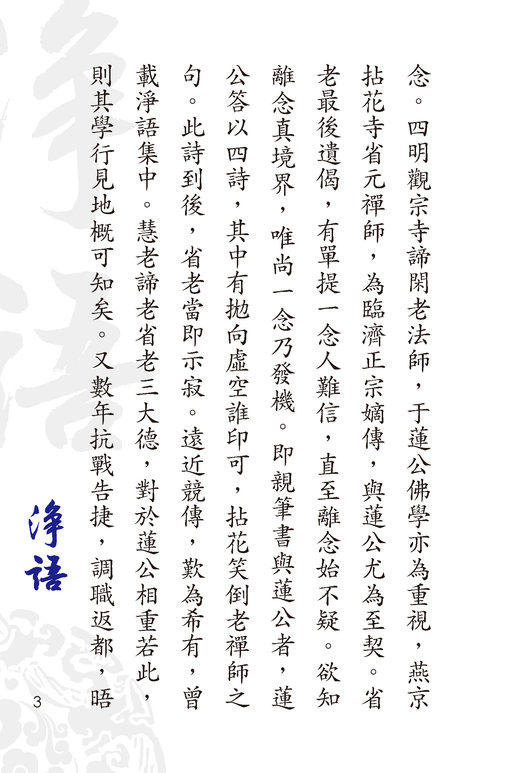 念。四明觀宗寺諦閑老法師，于蓮公佛學亦為重視，燕京
拈花寺省元禪師，為臨濟正宗嫡傳，與蓮公尤為至契。省
老最後遺偈，有單提一念人難信，直至離念始不疑。欲知
離念真境界，唯尚一念乃發機。即親筆書與蓮公者，蓮
公答以四詩，其中有拋向虛空誰印可，拈花笑倒老禪師之
句。此詩到後，省老當即示寂。遠近競傳，歎為希有，曾
載淨語集中。慧老諦老省老三大德，對於蓮公相重若此，
則其學行見地概可知矣。又數年抗戰告捷，調職返都，晤
淨語
3
淨語